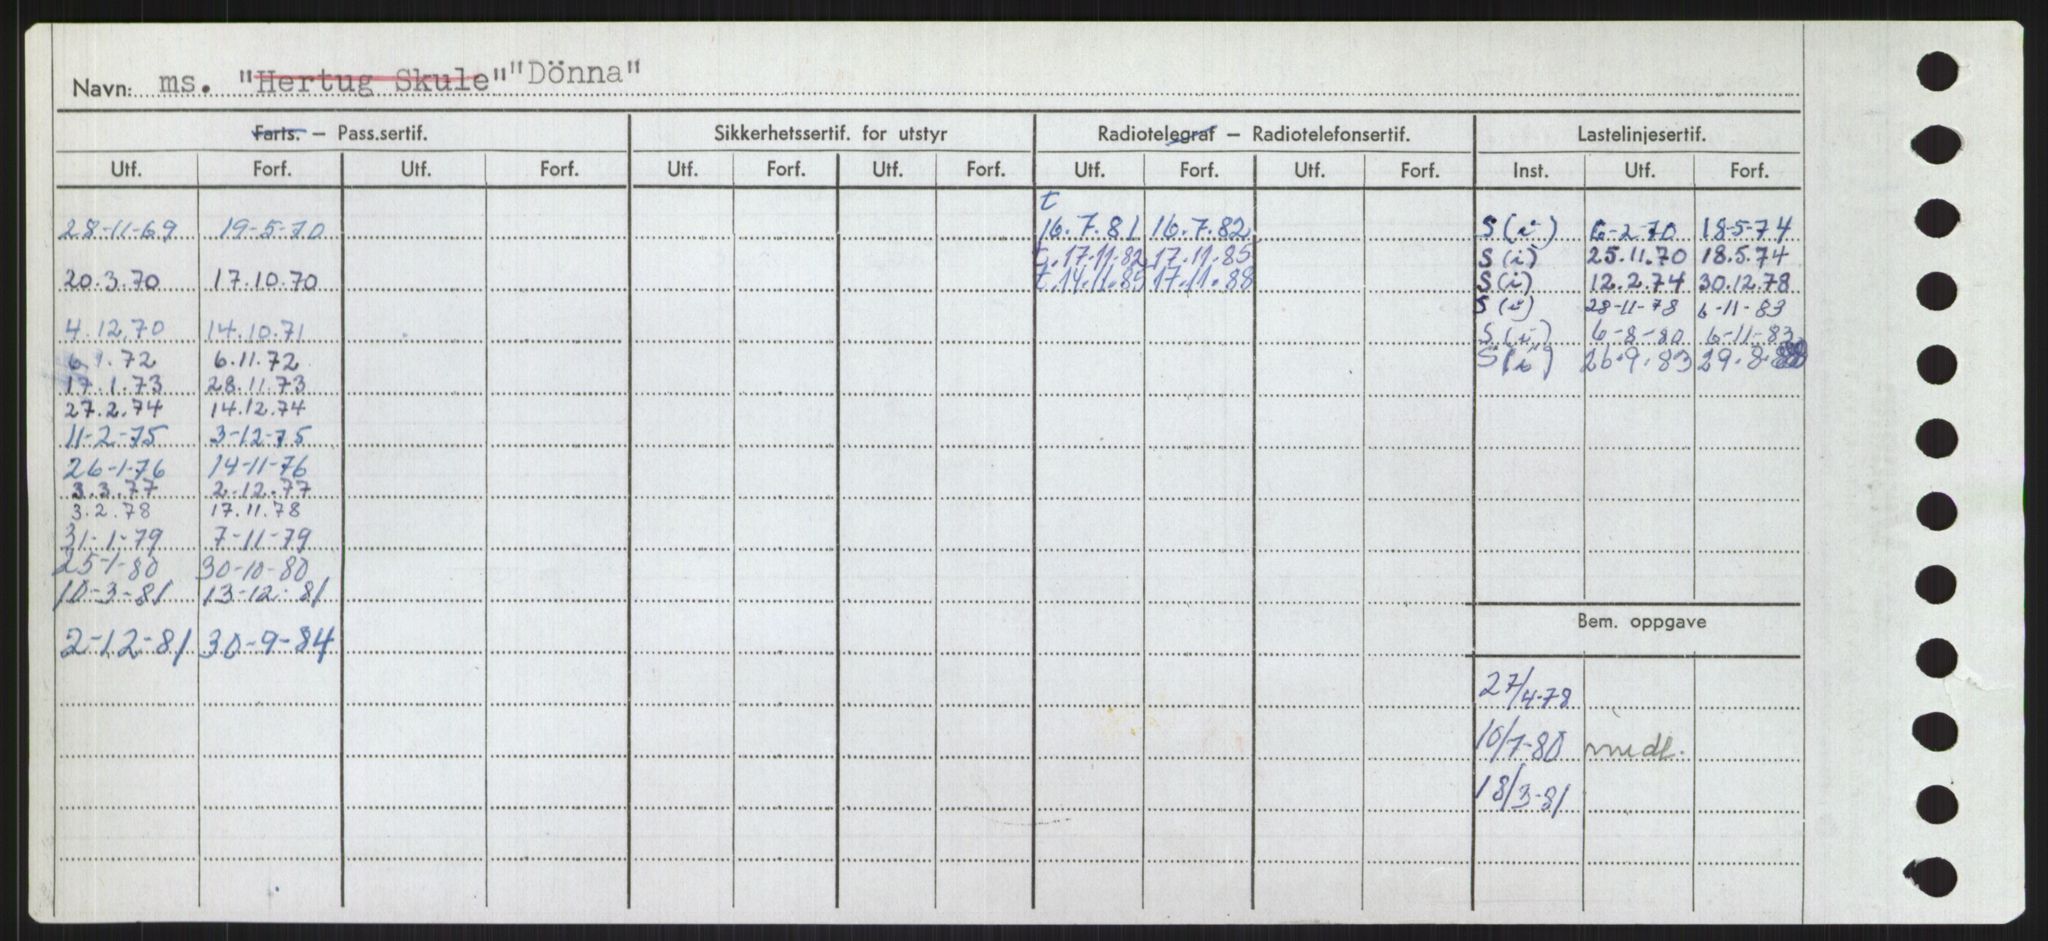 Navn: ms. "Hertug Skule" "Dönna"
Farts. – Pass.sertif. Sikkerhetssertif. for utstyr Radiotelegraf – Radiotelefonsertif. Lastelinjesertif.
Utf. Forf. Utf. Forf. Utf. Forf. Utf. Forf. Utf. Forf. Utf. Forf. Inst. Utf. Forf.
t
28-11-69 19-5-70 16.7.81 16.7.82 S (i) 6-2-70 18-5-74
t. 17.11.82 17.11.85 S (i) 25.11.70 18.5.74
20.3.70 17.10.70 t. 14.11.85 17.11.88 S (i) 12.2.74 30.12.78
S (i) 28-11-78 6-11-83
4.12.70 14.10.71 S (i) 6-8-80 6-11-83
6.1.72 6.11.72 S (i) 26.9.83 29.8.88
17.1.73 28.11.73
27.2.74 14.12.74
11-2-75 3-12-75
26-1-76 14-11-76
3.3.77 2.12.77
3.2.78 17.11.78
31-1-79 7-11-79
25-1-80 30-10-80
10-3-81 13-12-81
Bem. oppgave
2-12-81 30-9-84
27/4-78
10/7-80 midl.
18/3-81